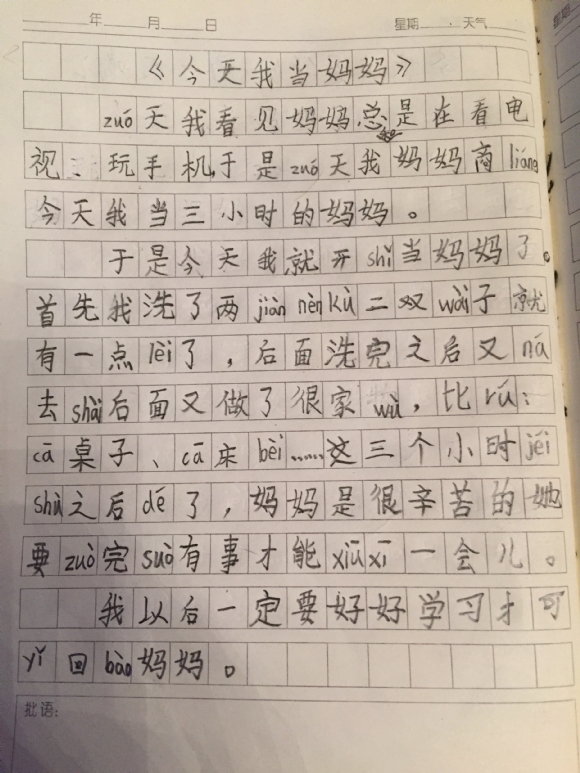 年 月 日 星期 天气
《今天我当妈妈》
zuó天我看见妈妈总是在看电
视、玩手机,于是zuó天我妈妈商liáng
今天我当三小时的妈妈。
于是今天我就开shǐ当妈妈了。
首先我洗了两jiàn nèn kù二双wài子就
有一点lèi了，后面洗完之后又ná
去shài后面又做了很家wù，比rú：
cā桌子、cā床bèi……这三个小时jéi
shù之后dé了，妈妈是很辛苦的她
要zuò完suǒ有事才能xiūxī一会儿。
我以后一定要好好学习才可
yǐ回bào妈妈。
批语：